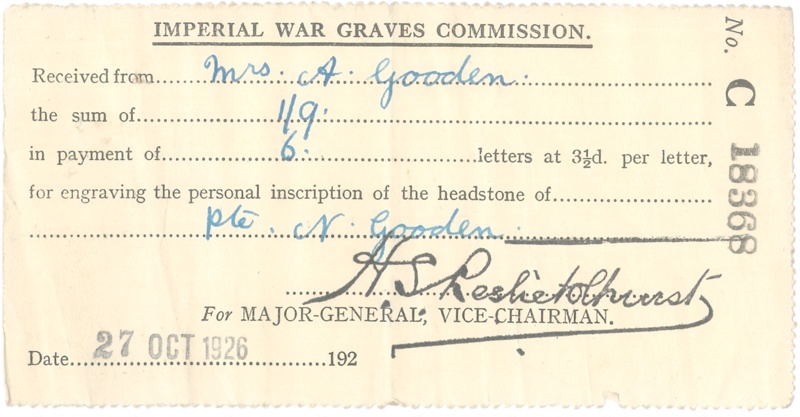 IMPERIAL WAR GRAVES COMMISSION.
No. C 18368
Received from Mrs. A. Gooden.
the sum of 1/9.
in payment of 6. letters at 3½d. per letter,
for engraving the personal inscription of the headstone of
Pte. N. Gooden.
For MAJOR-GENERAL, VICE-CHAIRMAN.
Date 27 OCT 1926 192